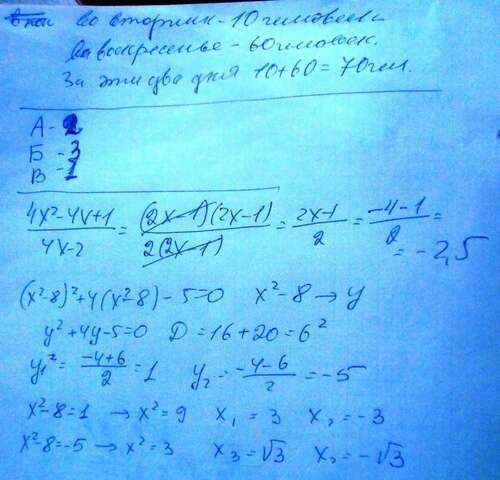 во вторник - 10 человек
в воскресенье - 60 человек.
За эти два дня 10+60=70 чел.
А - 2
Б - 3
В - 1
(4x²-4x+1)/(4x-2) = ((2x-1)(2x-1))/(2(2x-1)) = (2x-1)/2 = (-4-1)/2 = = -2,5
(x²-8)²+4(x²-8)-5=0 x²-8 → y
y²+4y-5=0 D=16+20=6²
y₁ = (-4+6)/2 = 1 y₂ = (-4-6)/2 = -5
x²-8=1 → x²=9 x₁ = 3 x₂ = -3
x²-8=-5 → x²=3 x₃=√3 x₂=-√3